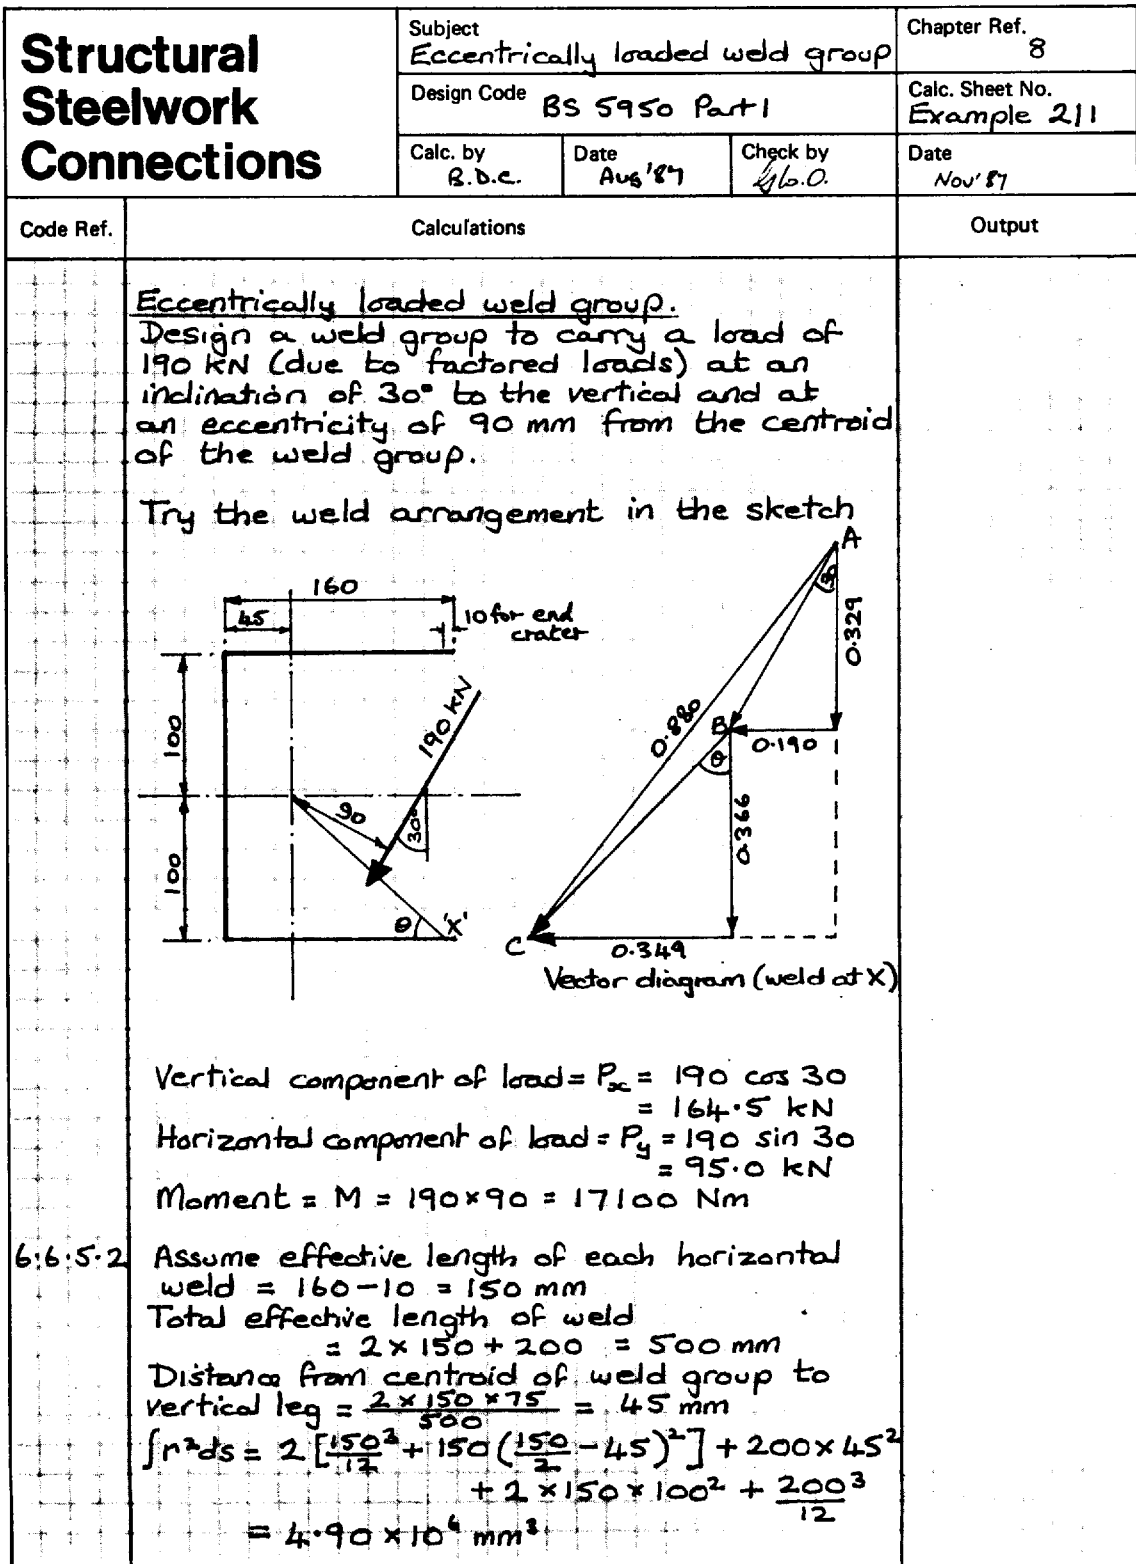 Structural
Steelwork
Connections
Subject
Eccentrically loaded weld group
Chapter Ref.
8
Design Code BS 5950 Part 1
Calc. Sheet No.
Example 2/1
Calc. by
B.D.C.
Date
Aug '87
Check by
Date
Nov' 87
Code Ref.
Calculations
Output
Eccentrically loaded weld group.
Design a weld group to carry a load of
190 kN (due to factored loads) at an
inclination of 30° to the vertical and at
an eccentricity of 90 mm from the centroid
of the weld group.
Try the weld arrangement in the sketch
160
45
10 for end
crater
100
100
190 kN
90
30°
θ
'X'
A
30
0.329
0.880
B
0.190
θ
0.366
C
0.349
Vector diagram (weld at X)
Vertical component of load = Px = 190 cos 30
= 164.5 kN
Horizontal component of load = Py = 190 sin 30
= 95.0 kN
Moment = M = 190 × 90 = 17100 Nm
6.6.5.2 Assume effective length of each horizontal
weld = 160 - 10 = 150 mm
Total effective length of weld
= 2 × 150 + 200 = 500 mm
Distance from centroid of weld group to
vertical leg = 2 × 150 × 75 / 500 = 45 mm
∫r²ds = 2 [150³/12 + 150 (150/2 - 45)²] + 200 × 45²
+ 2 × 150 × 100² + 200³/12
= 4.90 × 10⁶ mm³